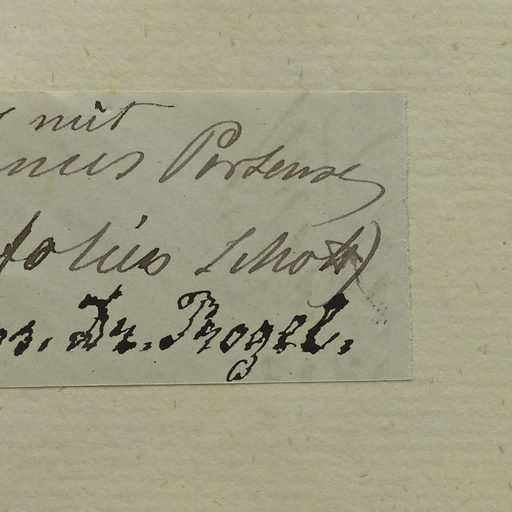 mit
nus Portensc
folius Schott)
os. Dr. Progel.